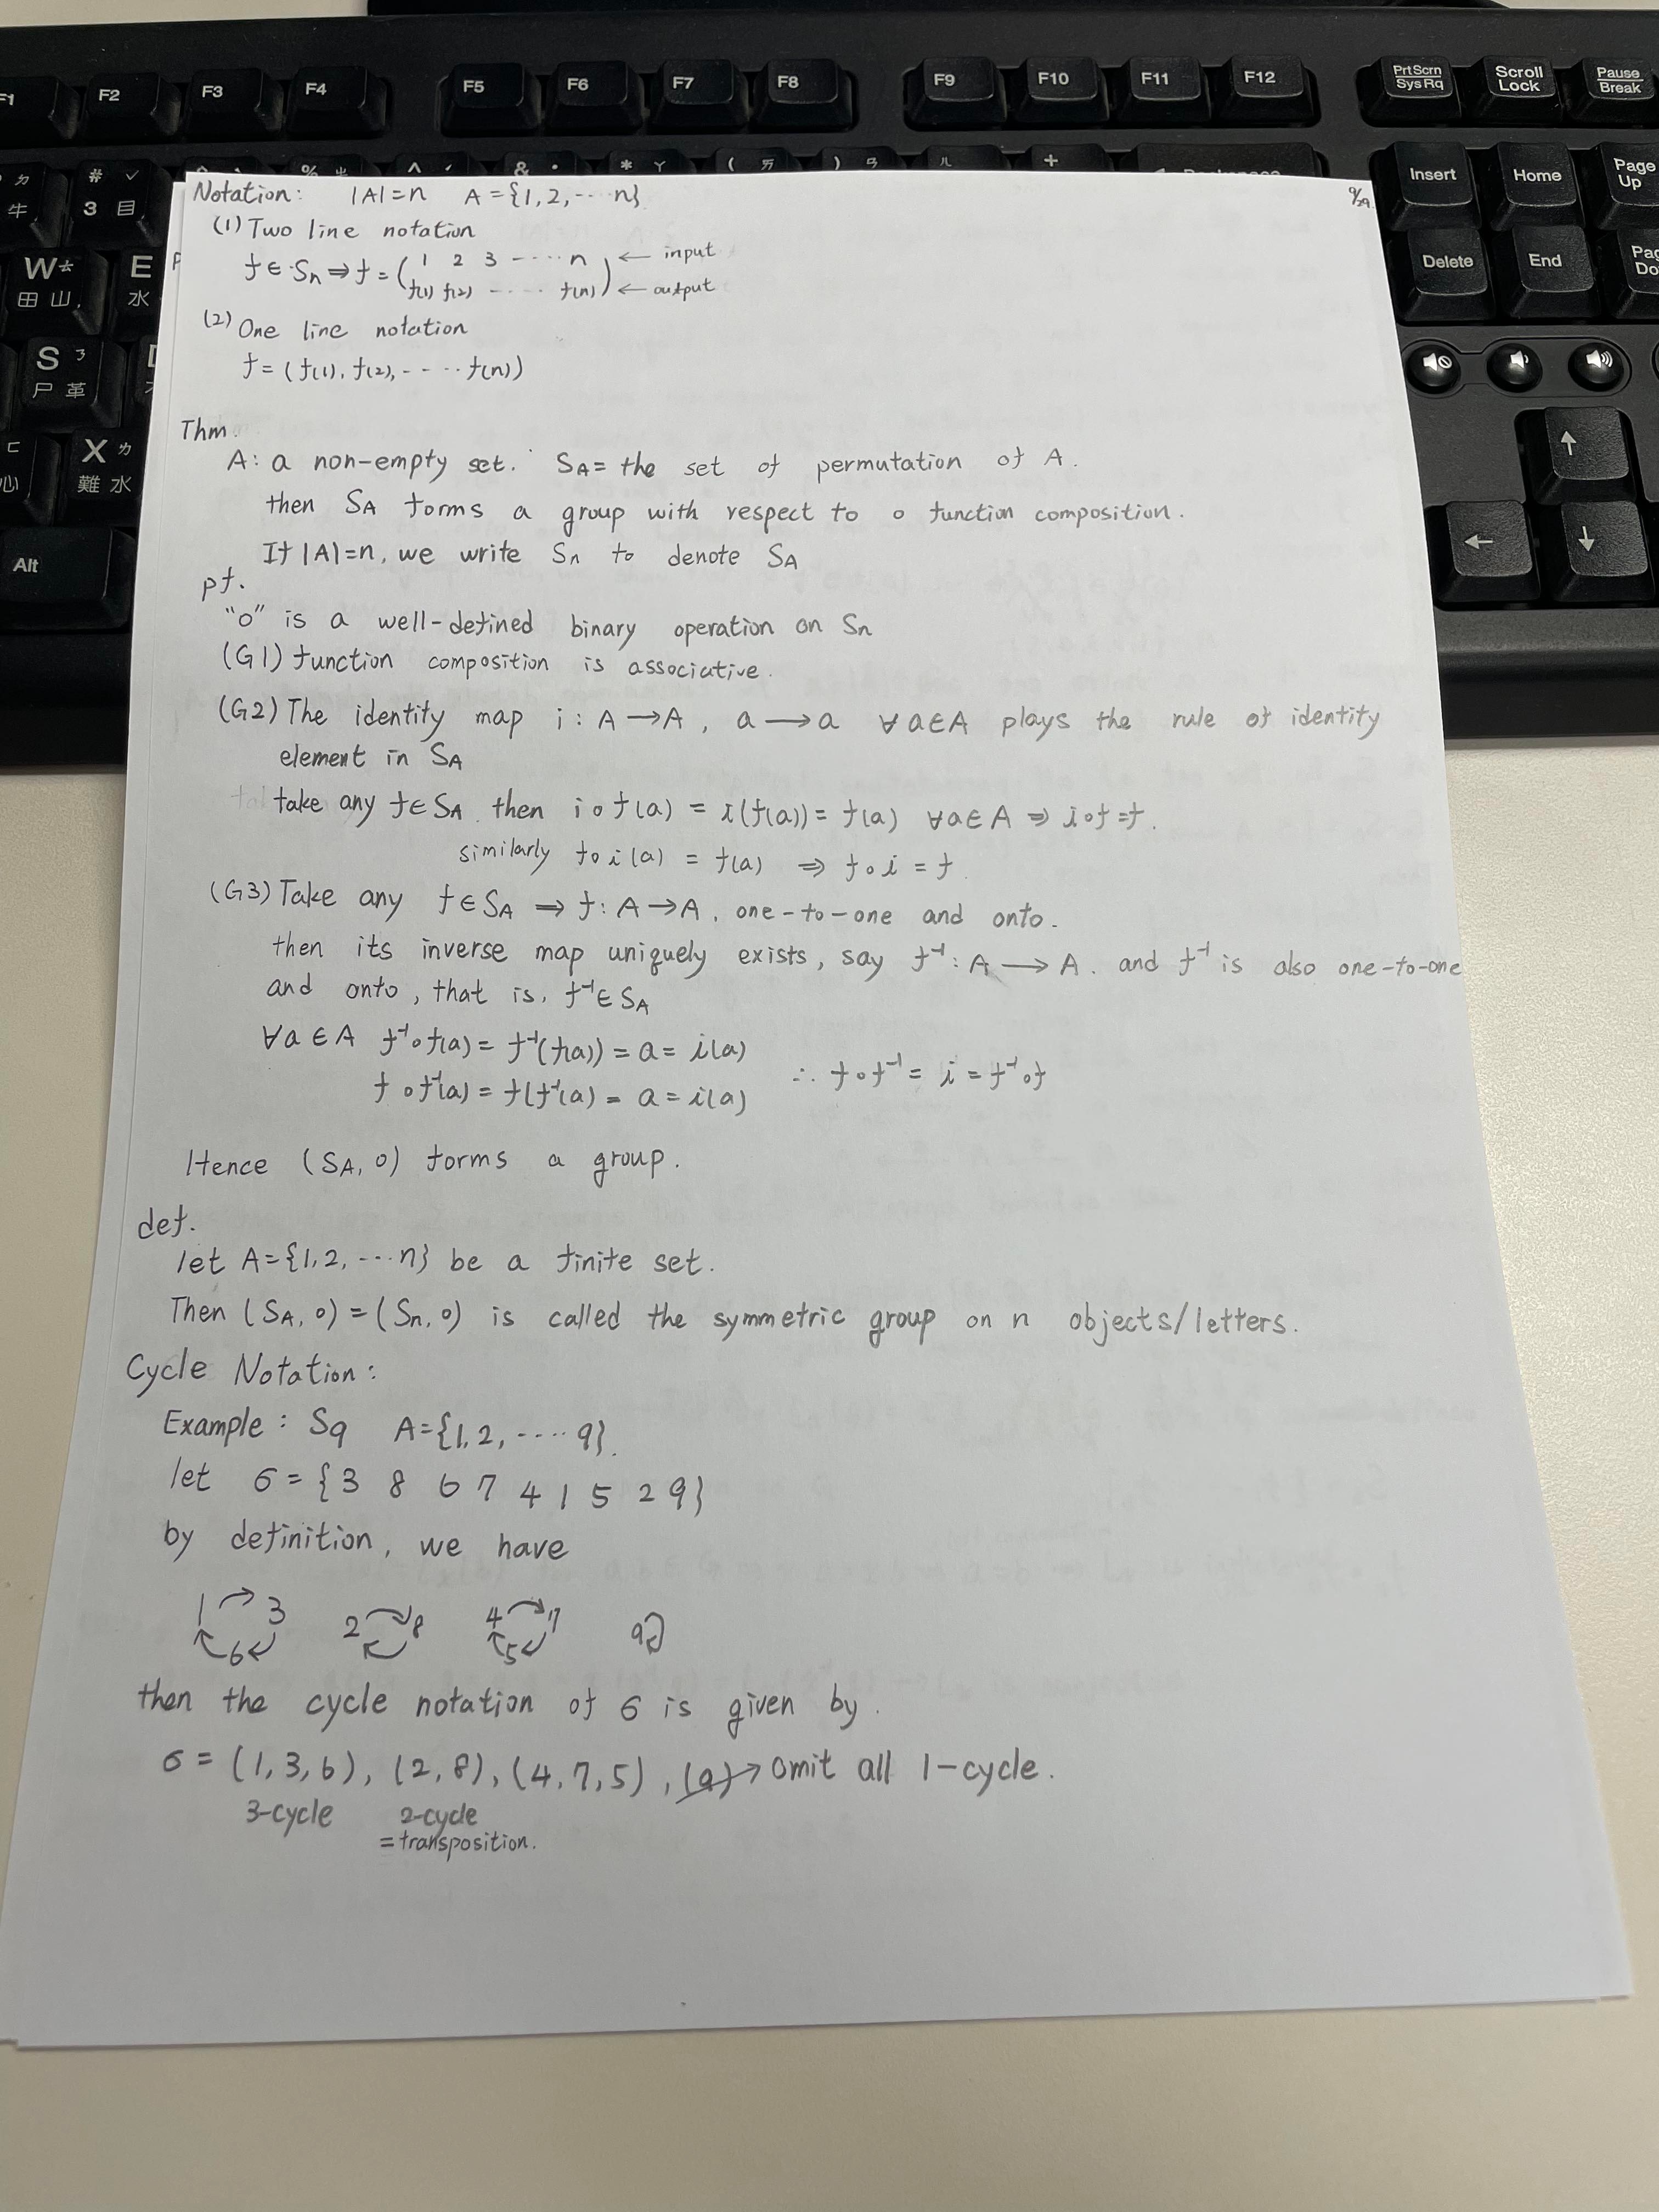 F1 F2 F3 F4 F5 F6 F7 F8 F9 F10 F11 F12 PrtScrn SysRq Scroll Lock Pause Break
# 3 % ^ & * ( ) + Insert Home Page Up
W E Delete End
S
X
Alt
9/29
Notation: |A|=n A={1,2,…n}
(1) Two line notation
f∈Sn⇒f=( 1 2 3 ----- n ) ← input
f(1) f(2) ----- f(n) ← output
(2) One line notation
f=(f(1), f(2), ---- f(n))
Thm.
A: a non-empty set. SA= the set of permutation of A.
then SA forms a group with respect to o function composition.
If |A|=n, we write Sn to denote SA
pf.
"o" is a well-defined binary operation on Sn
(G1) function composition is associative.
(G2) The identity map i: A→A, a→a ∀a∈A plays the rule of identity
element in SA
take any f∈SA then i∘f(a) = i(f(a)) = f(a) ∀a∈A ⇒ i∘f=f.
similarly f∘i(a) = f(a) ⇒ f∘i = f
(G3) Take any f∈SA ⇒ f: A→A, one-to-one and onto.
then its inverse map uniquely exists, say f⁻¹: A→A. and f⁻¹ is also one-to-one
and onto, that is, f⁻¹∈SA
∀a∈A f⁻¹∘f(a) = f⁻¹(f(a)) = a = i(a)
f∘f⁻¹(a) = f(f⁻¹(a) = a = i(a) ∴ f∘f⁻¹ = i = f⁻¹∘f
Hence (SA, o) forms a group.
def.
let A={1,2,…n} be a finite set.
Then (SA, o) = (Sn, o) is called the symmetric group on n objects/letters.
Cycle Notation:
Example: S9 A={1,2,----9}.
let σ={3 8 6 7 4 1 5 2 9}
by definition, we have
1 3 2 8 4 7 9
6 5
then the cycle notation of σ is given by.
σ = (1,3,6), (2,8), (4,7,5), (9) → omit all 1-cycle.
3-cycle 2-cycle
=transposition.